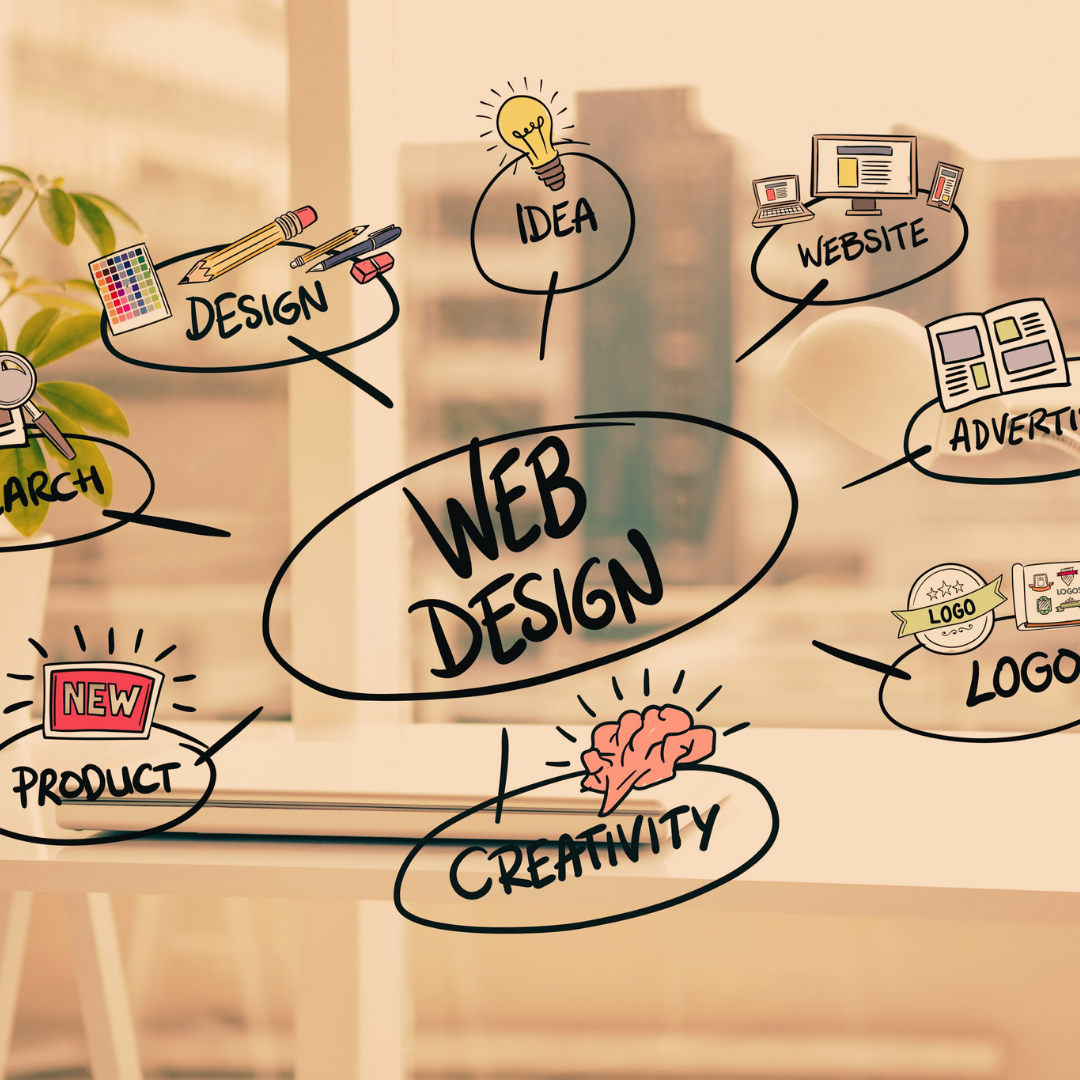 IDEA
WEBSITE
DESIGN
ADVERTI
EARCH
WEB
DESIGN
LOGO
LOGOS
LOGO
NEW
PRODUCT
CREATIVITY